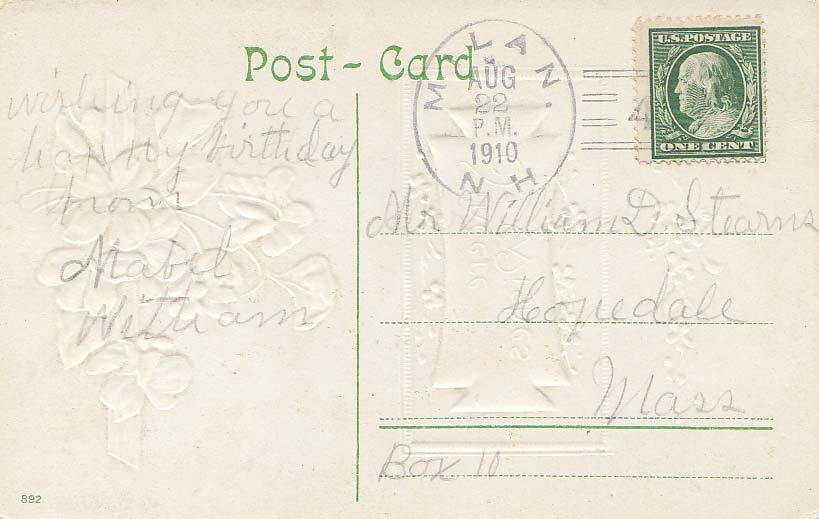 Post-Card
MILAN.
AUG
22
P.M.
1910
NH
4
U.S.POSTAGE
ONE CENT
wishing you a
happy birthday
from
Mabel
Witham
Mr William D. Stearns
Hopedale
Mass
Box 10
892